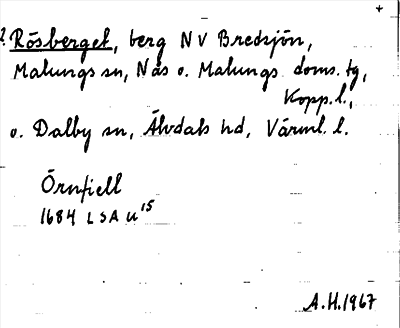 +
? Rösberget, berg NV Bredsjön,
Malungs sn, Nås o. Malungs doms. tg,
Kopp. l.,
o. Dalby sn, Älvdals hd, Värml. l.
Örnfiell
1684 LSA U15
A.H. 1967